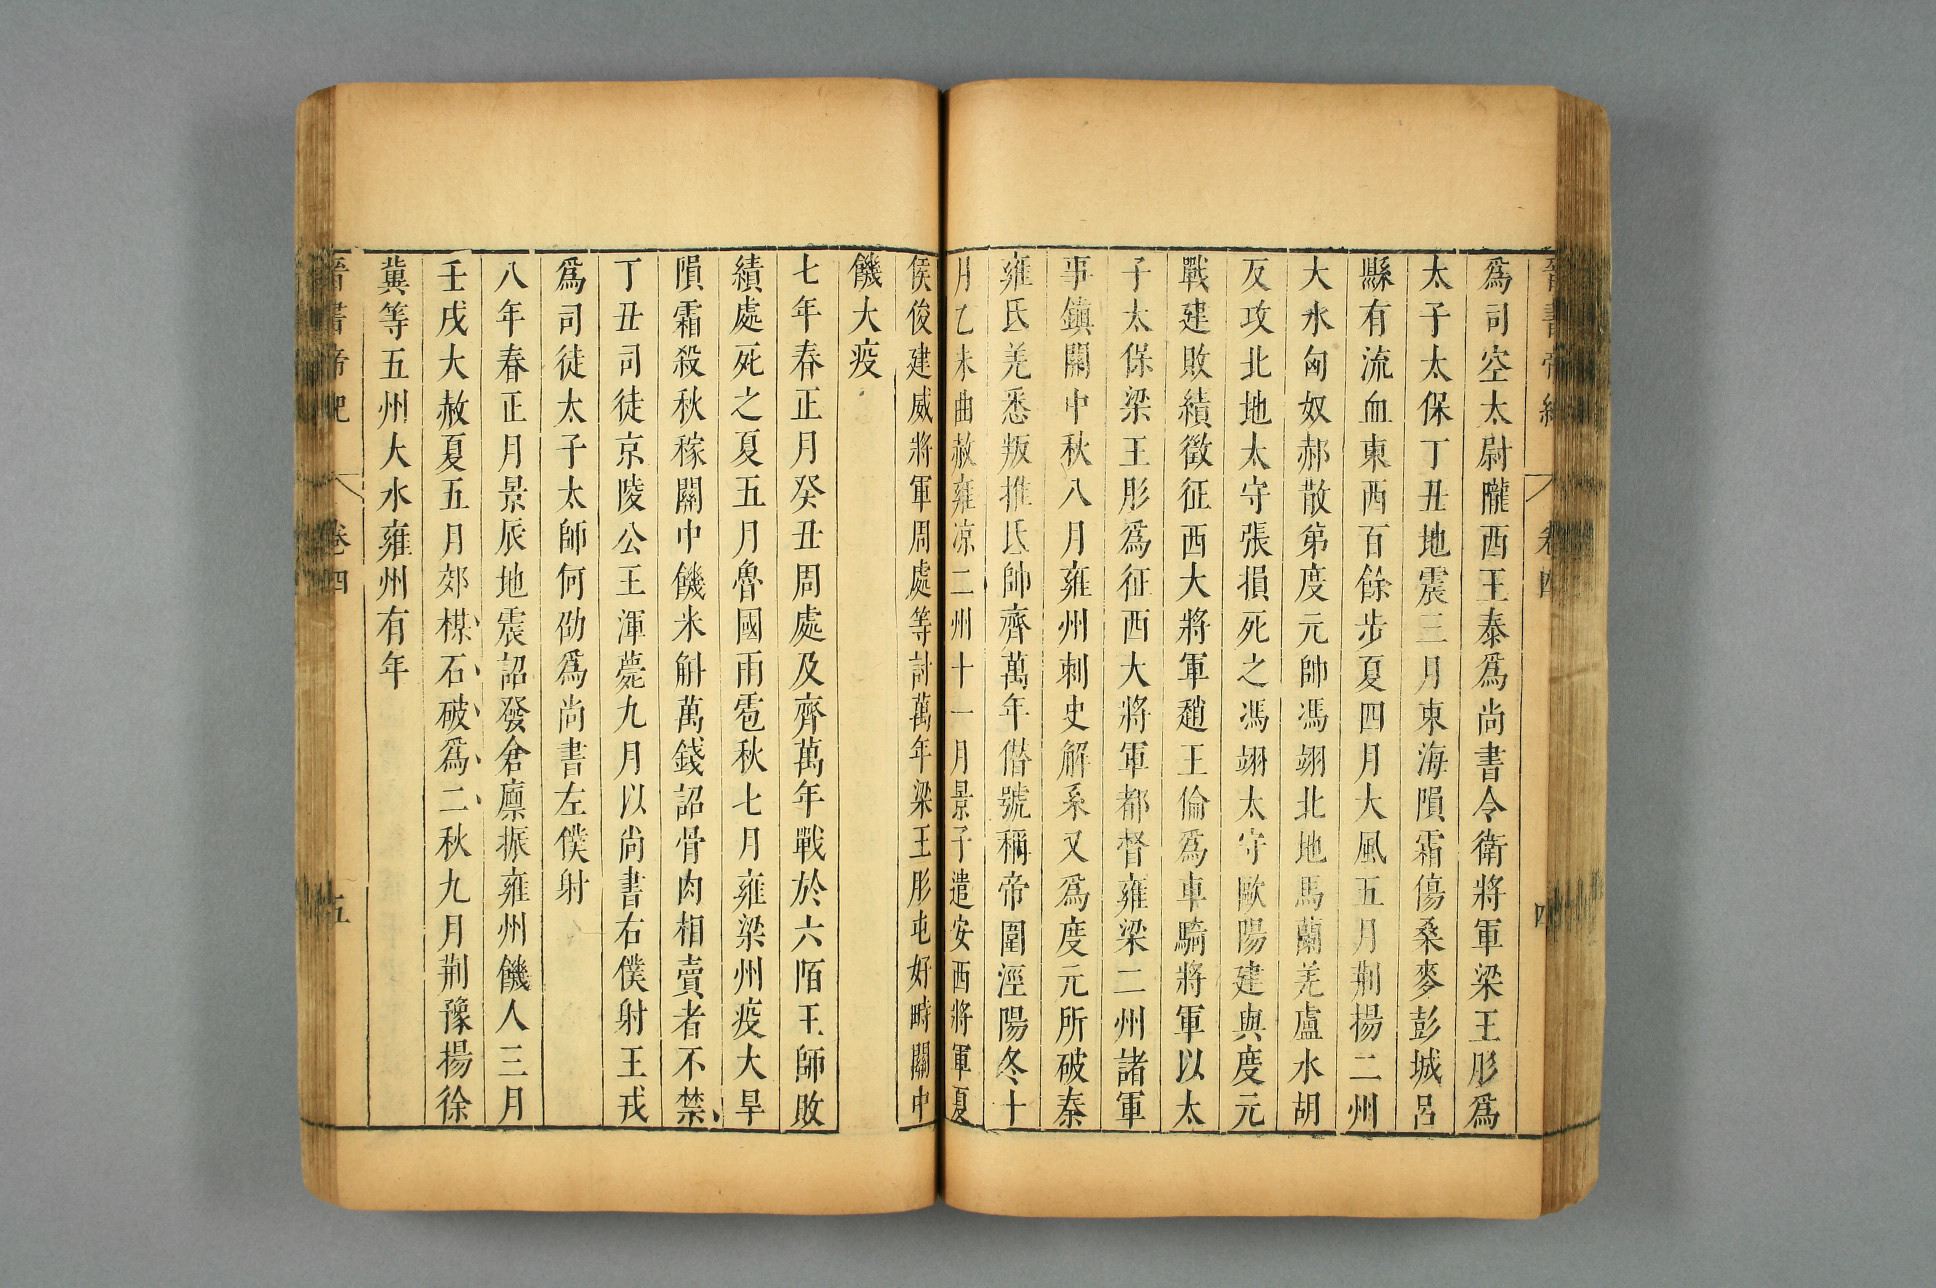 晉書帝紀 卷四 四
爲司空太尉隴西王泰爲尚書令衛將軍梁王彤爲
太子太保丁丑地震三月東海隕霜傷桑麥彭城呂
縣有流血東西百餘步夏四月大風五月荊揚二州
大水匈奴郝散弟度元帥馮翊北地馬蘭羌盧水胡
反攻北地太守張損死之馮翊太守歐陽建與度元
戰建敗績徵征西大將軍趙王倫爲車騎將軍以太
子太保梁王彤爲征西大將軍都督雍梁二州諸軍
事鎮關中秋八月雍州刺史解系又爲度元所破秦
雍氐羌悉叛推氐帥齊萬年僭號稱帝圍涇陽冬十
月乙未曲赦雍涼二州十一月景子遣安西將軍夏
侯俊建威將軍周處等討萬年梁王彤屯好畤關中
饑大疫
七年春正月癸丑周處及齊萬年戰於六陌王師敗
績處死之夏五月魯國雨雹秋七月雍梁州疫大旱
隕霜殺秋稼關中饑米斛萬錢詔骨肉相賣者不禁
丁丑司徒京陵公王渾薨九月以尚書右僕射王戎
爲司徒太子太師何劭爲尚書左僕射
八年春正月景辰地震詔發倉廩振雍州饑人三月
壬戌大赦夏五月郊禖石破爲二秋九月荊豫揚徐
冀等五州大水雍州有年
晉書帝紀 卷四 五